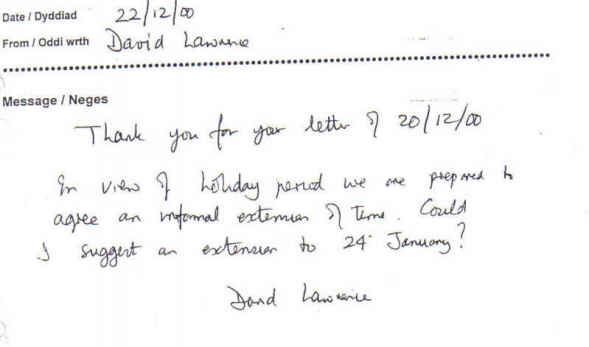 Date / Dyddiad 22/12/00
From / Oddi wrth David Lawrence
Message / Neges
Thank you for your letter of 20/12/00
In view of holiday period we are prepared to
agree an informal extension of Time. Could
I suggest an extension to 24 January?
David Lawrence